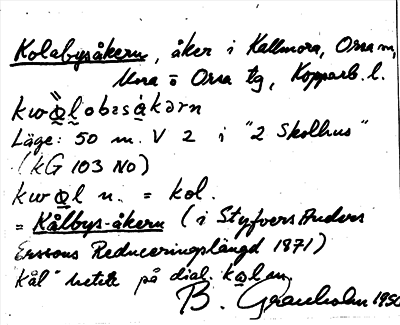 Kolabysåkern, åker i Kallmora, Orsa sn,
Mora o Orsa tg, Kopparb. l.
kwo̱l̰obəsåkərn
Läge: 50 m. V 2 i "2 Skolhus"
(KG 103 NO)
kwo̱l n. = kol.
= Kålbys-åkern (i Styfvers Anders
Erssons Reduceringslängd 1871)
Kål hette på dial. kålan
B. Granholm 1950